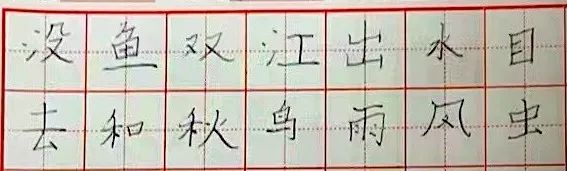 没鱼双江出水目
去和秋鸟雨风虫